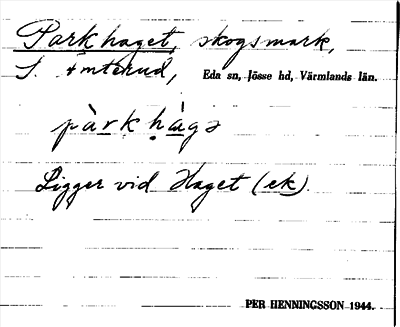 Parkhaget, skogsmark,
S. Åmterud, Eda sn, Jösse hd, Värmlands län.
pàrkhàgə
Ligger vid Haget (ek).
PER HENNINGSSON 1944.